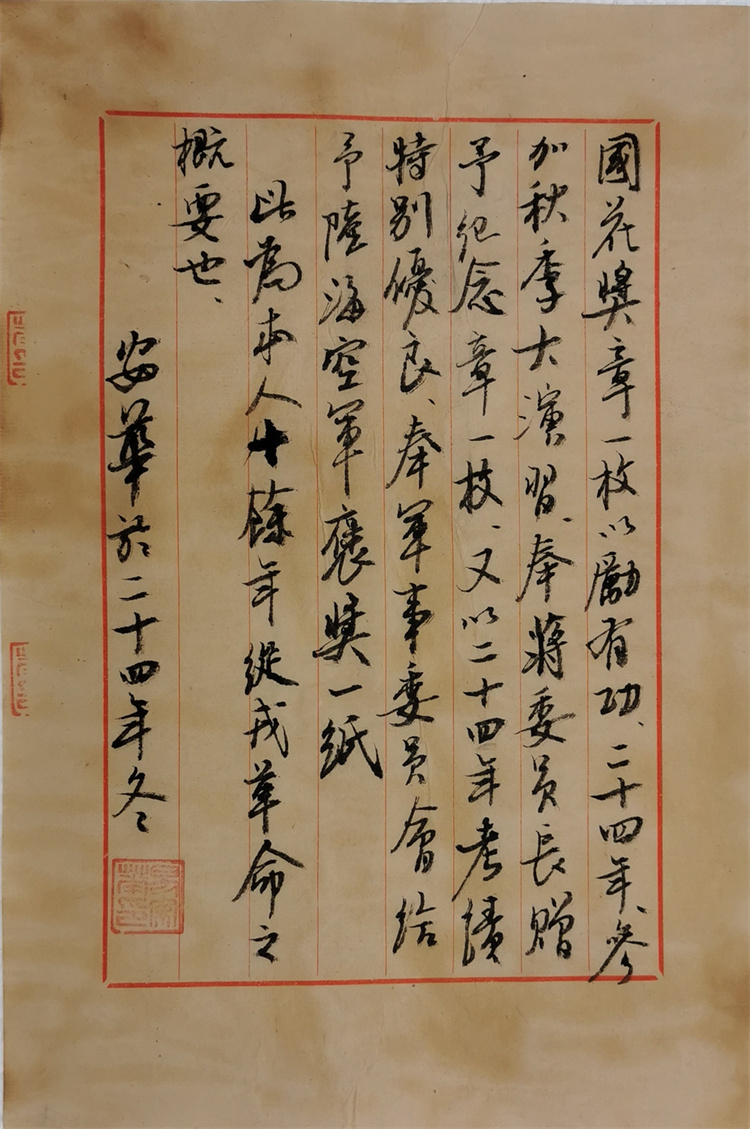 國花獎章一枚以勵有功、二十四年、參
加秋季大演習、奉蔣委員長贈
予紀念章一枝、又以二十四年考績
特別優良、奉軍事委員會給
予陸海空軍褒獎一紙
此為本人十餘年從戎革命之
概要也、
安華於二十四年冬、